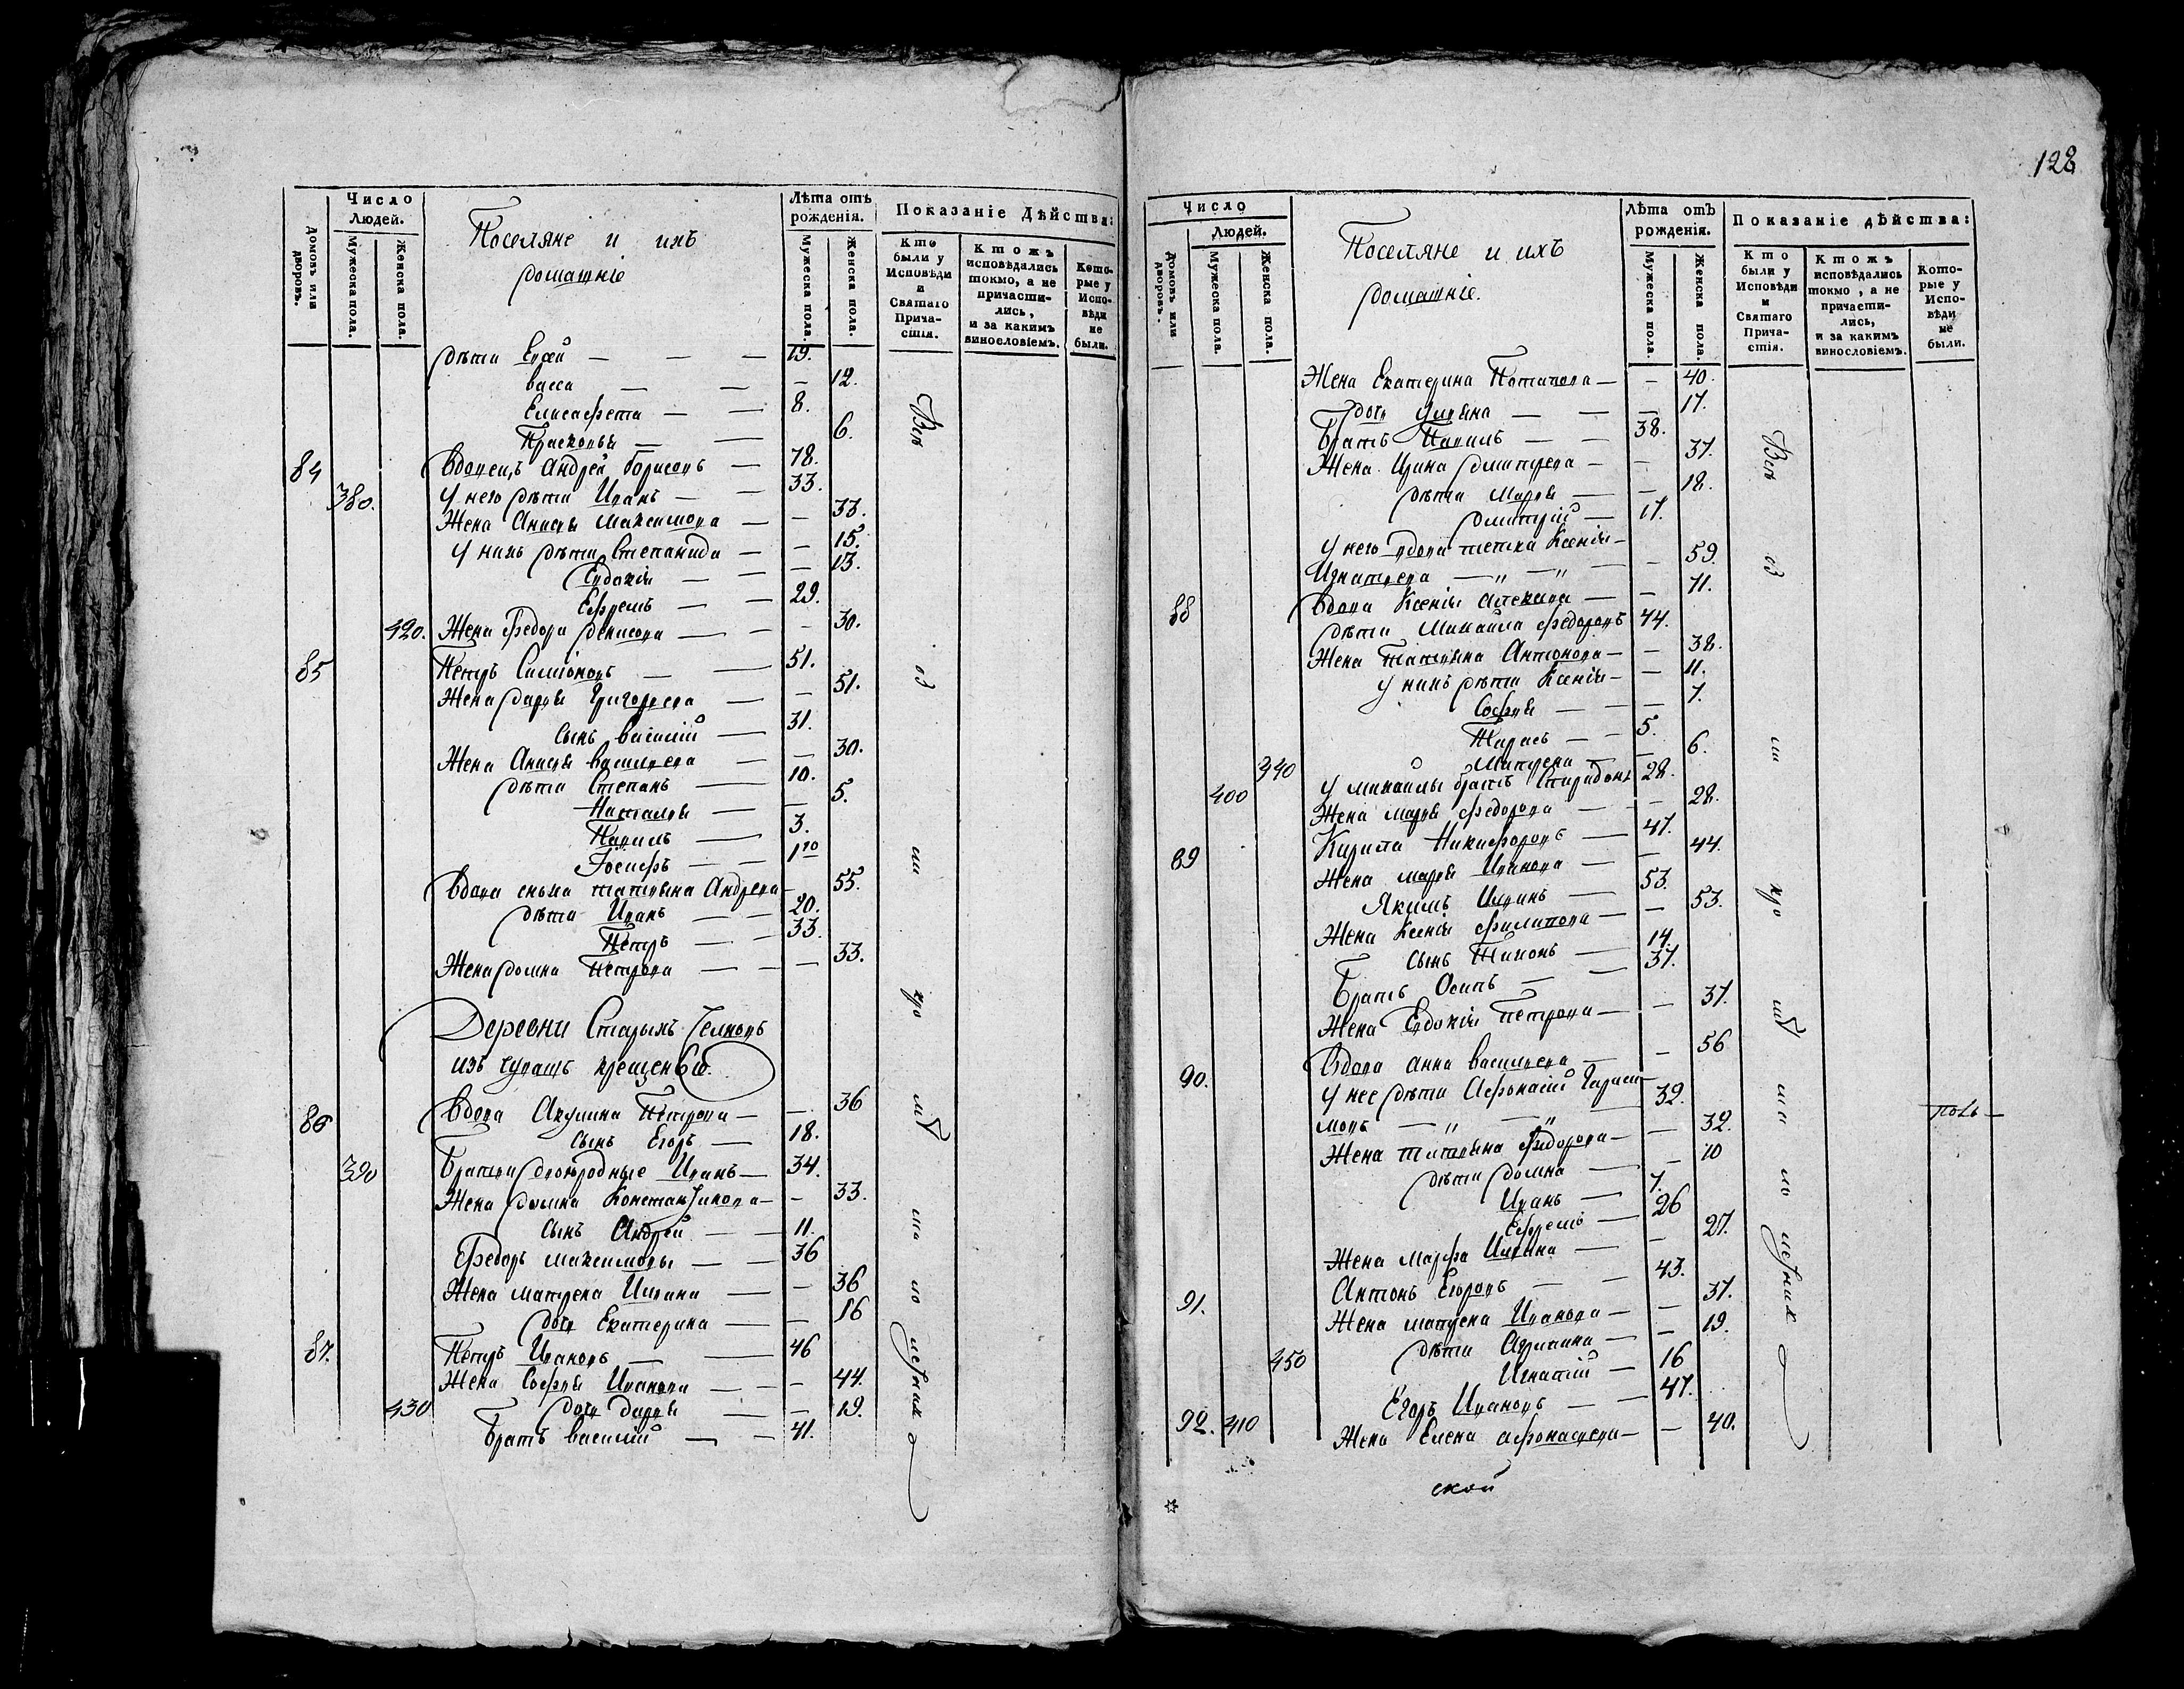 Число Людей.
Домовъ или дворовъ.
Мужеска пола.
Женска пола.
Поселяне и ихъ
домашніе
Лѣта отъ рожденія.
Мужеска пола.
Женска пола.
Показаніе Дѣйства:
Кто были у Исповѣди и Святаго Прича-стія.
Ктожъ исповѣдались токмо, а не причасти-лись, и за какимъ винословіемъ.
Кото-рые у Испо-вѣди не были.
дѣти Елсей — — — 19.
васса — — — 12.
Елисафета — — 8.
Прасковья — — 6.
84 Вдовецъ Андрей Борисовъ — 78.
380. У него дѣти Иванъ — — 33.
Жена Анисья Максимова — — 33.
у нихъ дѣти Степанида — — 15.
Евдокія — — — 13.
Ефремъ — — 29.
420. Жена Федора Денисова — — — 30.
85 Петръ Симіоновъ — — 51.
Жена Дарья Григорьева — — 51.
Сынъ василій — 31.
Жена Анисья васильева — — 30.
дѣти Степанъ — 10.
Наталья — — 5.
Павилъ — 3.
Іосифъ — — 1
Вдова снъха татьяна Андреева — 55.
дѣти Иванъ — — 20.
Петръ — — 33.
Жена Домна Петрова — — — 33.
Деревни Старыхъ Челновъ
изъ чувашъ крещеныѣ.
86 Вдова Акулина Петрова — — 36
Сынъ Егоръ — 18.
390 Братья двоюродные Иванъ — 34.
Жена Домна Константинова — — 33.
Сынъ Андрей — — 11.
Федоръ максимовъ — — 36
Жена матрена Ильина — — 36
дочь Екатерина — — 16
87. Петръ Ивановъ — — 46
Жена Софья Иванова — — — 44.
430 дочь Дарья — — 19.
Братъ василій — — 41.
Всѣ
оз
ли
кро
мѣ
ма
ло
лѣтних
128
Число
Людей.
Домовъ или дворовъ.
Мужеска пола.
Женска пола.
Поселяне и ихъ
домашніе.
Лѣта отъ рожденія.
Мужеска пола.
Женска пола.
Показаніе дѣйства:
Кто были у Исповѣди и Святаго Прича-стія.
Ктожъ исповѣдались токмо, а не причасти-лись, и за какимъ винословіемъ.
Кото-рые у Испо-вѣди не были.
Жена Екатерина Потапова — — 40.
дочь Ульяна — — — 17.
Братъ Павилъ — — 38.
Жена Ирина Дмитрева — — 37.
дѣти Марья — — 18.
Дмитрій — 17.
У него вдова тетка Ксенія —
Игнатьева — „ — „ — 59.
88 Вдова Ксенія — — 71.
дѣти Михаила Федоровъ 44.
Жена Татьяна Антонова — — 38.
у нихъ дѣти Ксенія — — 11.
Софья — — — 7.
Тарасъ — — 5.
340 Матрена — — 6.
400 У михаилы братъ Спиридонъ 28.
Жена марья Федорова — — 28.
89 Кирила Никифоровъ — 47.
Жена марья Иванова — — 44.
Якимъ Ильинъ — 53.
Жена Ксенія Филипова — — 53.
Сынъ Тихонъ — 14.
Братъ Осипъ — — 37.
Жена Евдокія Петрова — — 37.
90. Вдова анна васильева — — 56
у нее дѣти Афонасій Гараси-
мовъ — „ — „ 32.
Жена татьяна Федорова — — 32.
дѣти Домна — — 10
Иванъ — 7.
Ефремъ — 26
Жена Марфа Ильина — — 27.
91. Антонъ Егоровъ — — 43.
Жена матрена Иванова — — 37.
дѣти Агрипина — — 19.
450 Игнатій — 16
92. 410 Егоръ Ивановъ — — 47.
Жена Елена афонасьева — — 40.
Всѣ
оз
ли
кро
мѣ
ма
ло
лѣтних
ской